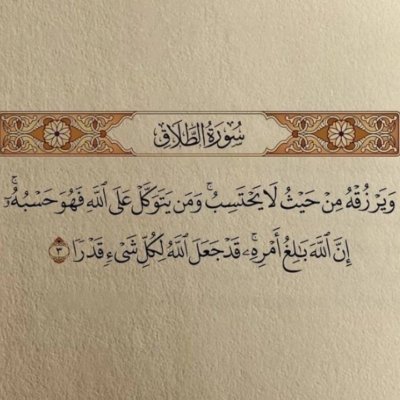 سُورَةُ الطَّلَاقِ
وَيَرْزُقْهُ مِنْ حَيْثُ لَا يَحْتَسِبُ ۚ وَمَن يَتَوَكَّلْ عَلَى اللَّهِ فَهُوَ حَسْبُهُ ۥٓ ۚ
إِنَّ اللَّهَ بَٰلِغُ أَمْرِهِۦ ۚ قَدْ جَعَلَ اللَّهُ لِكُلِّ شَىْءٍ قَدْرًا ٣